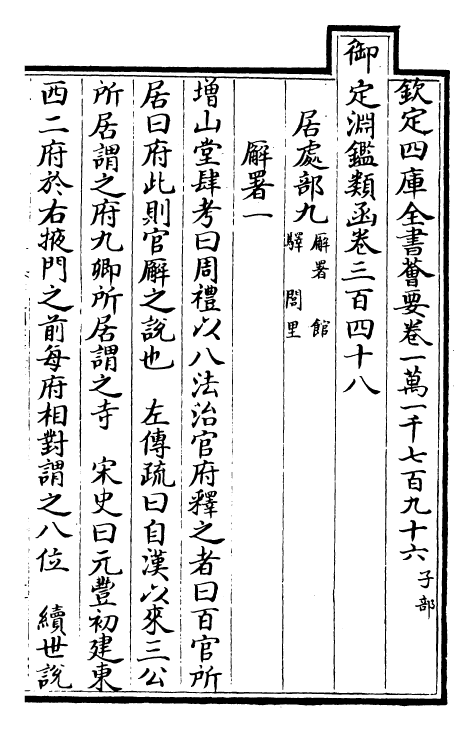 欽定四庫全書薈要卷一萬一千七百九十六 子部
御定淵鑑類函卷三百四十八
居處部九 廨署 館
驛 閭里
廨署一
增山堂肆考曰周禮以八法治官府釋之者曰百官所
居曰府此則官廨之說也 左傳疏曰自漢以來三公
所居謂之府九卿所居謂之寺 宋史曰元豐初建東
西二府於右掖門之前每府相對謂之八位 續世說